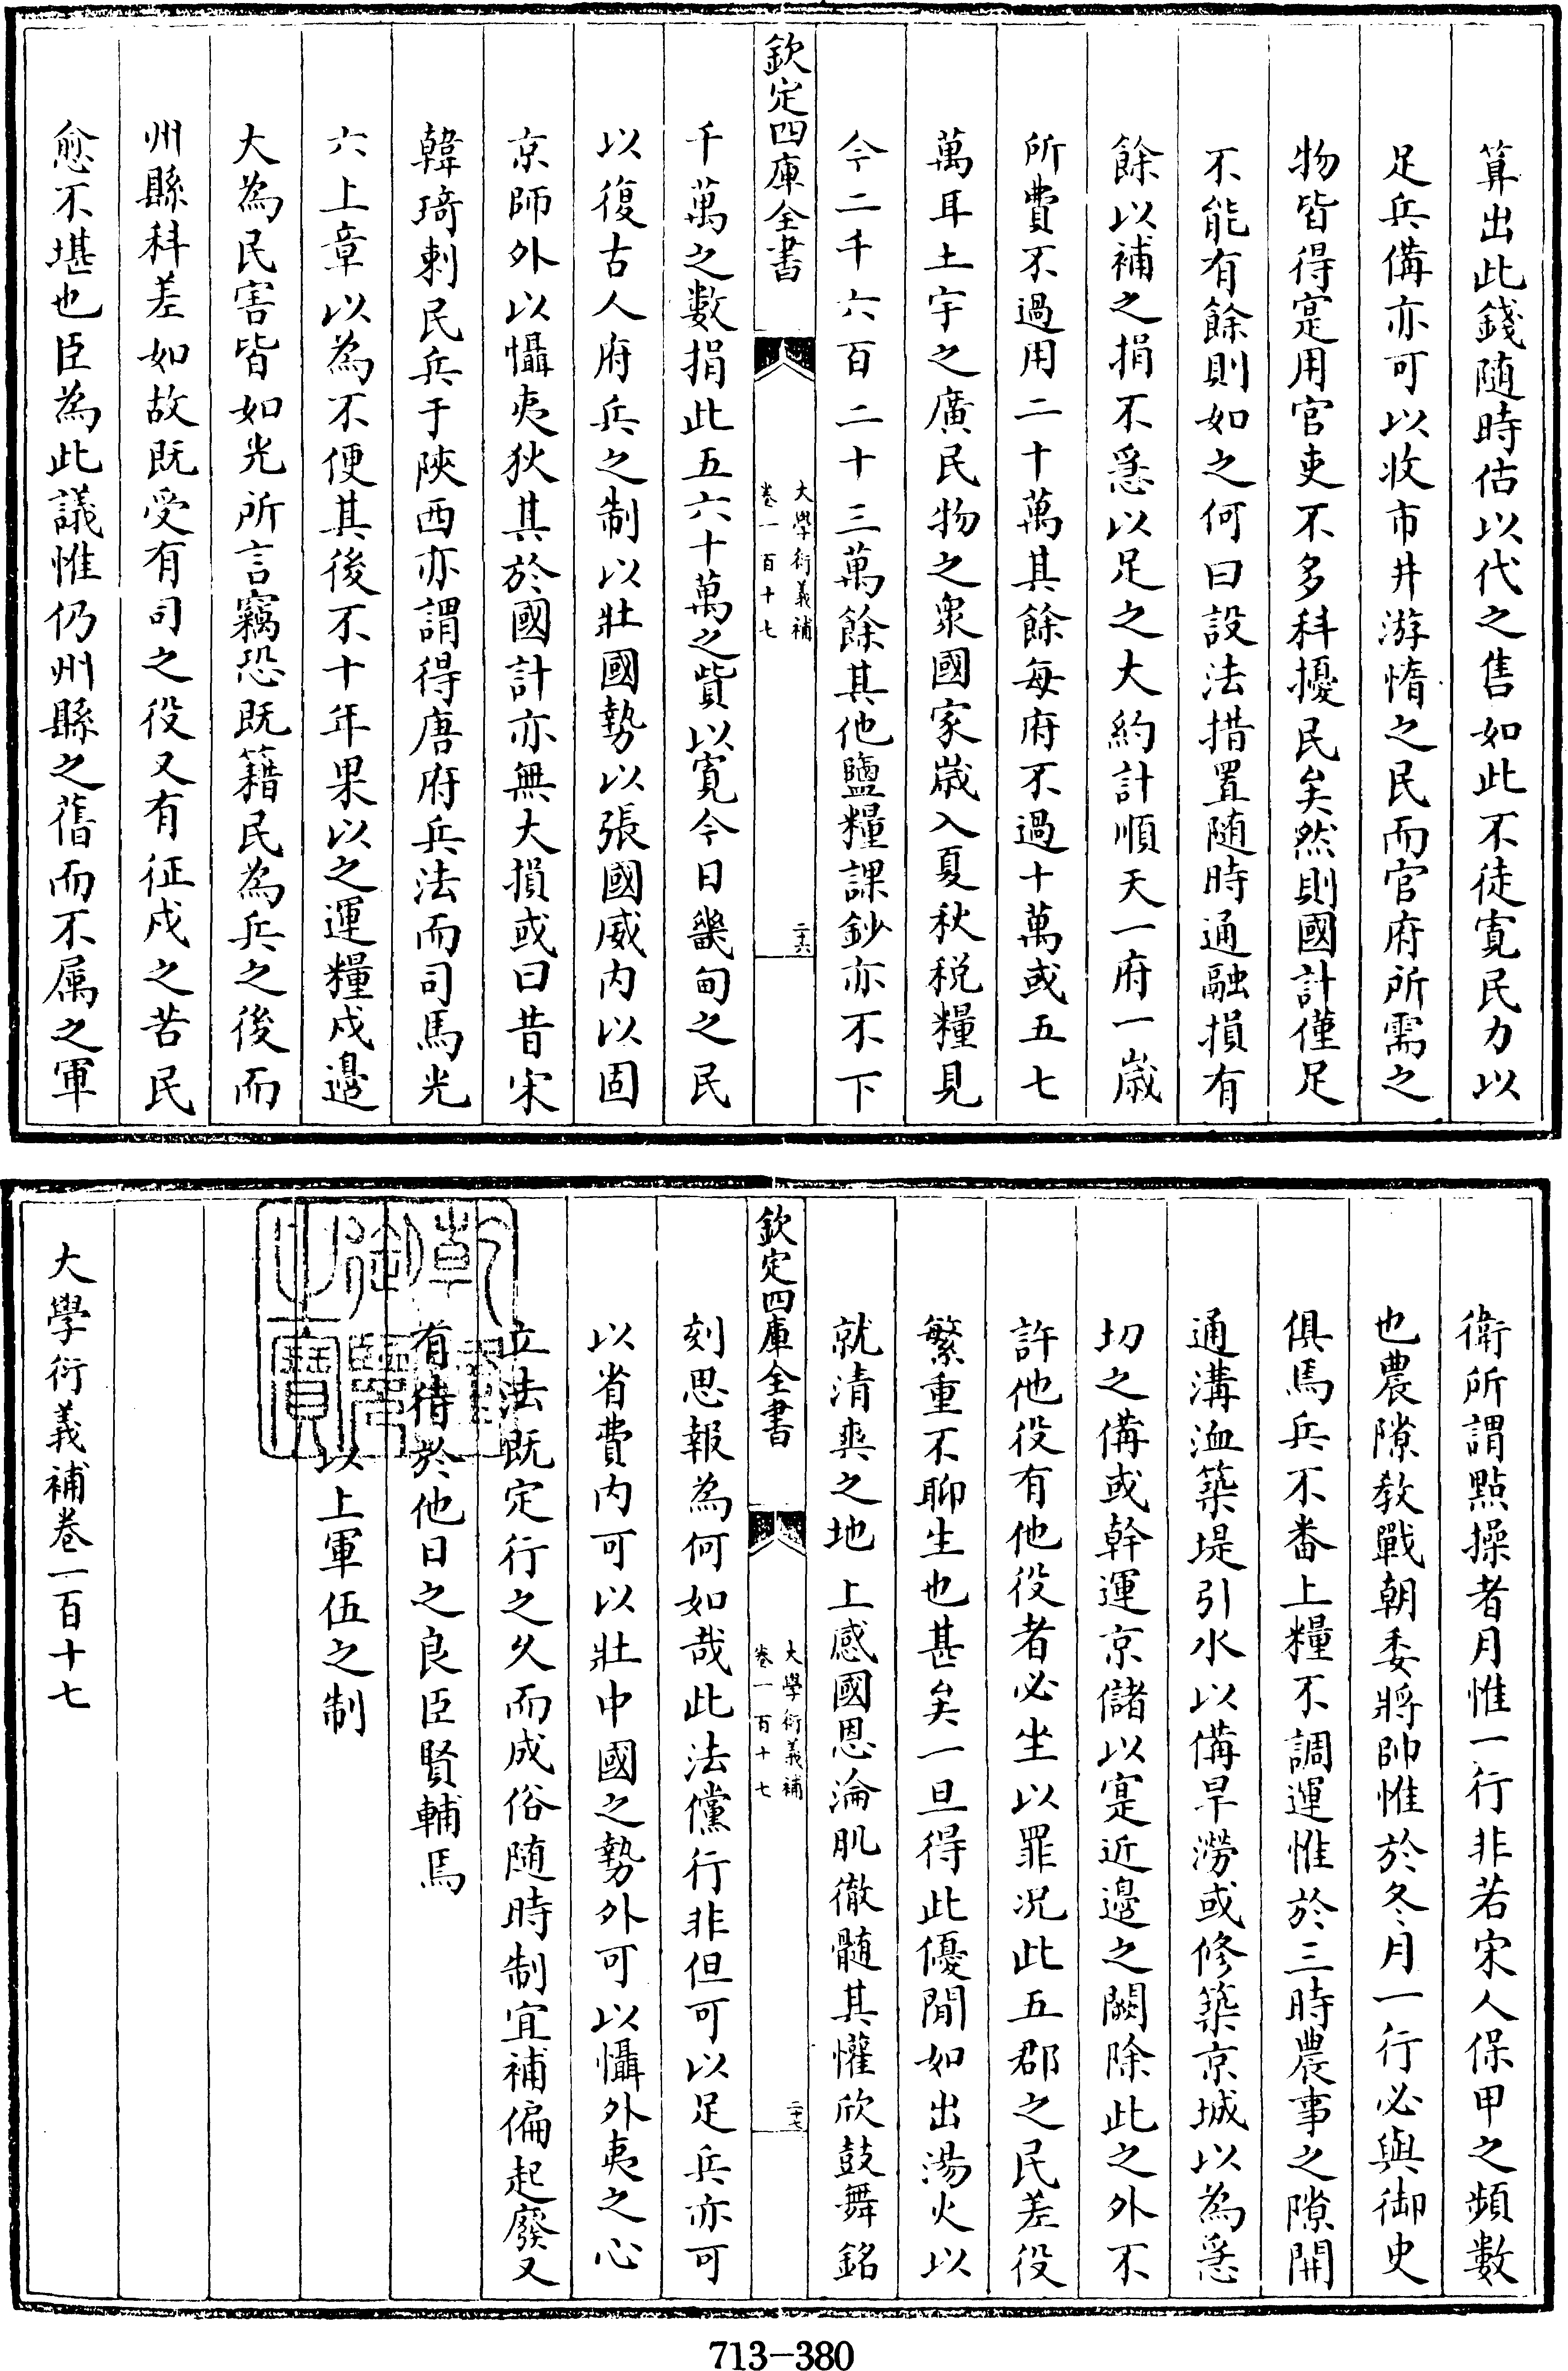 算出此錢随時估以代之售如此不徒寛民力以
足兵備亦可以收市井游惰之民而官府所需之
物皆得寔用官吏不多科擾民矣然則國計僅足
不能有餘則如之何曰設法措置随時通融損有
餘以補之捐不急以足之大約計順天一府一歲
所費不過用二十萬其餘每府不過十萬或五七
萬耳土宇之廣民物之衆國家歲入夏秋税糧見
今二千六百二十三萬餘其他鹽糧課鈔亦不下
欽定四庫全書
大學衍義補
卷一百十七
二十六
千萬之數捐此五六十萬之貲以寛今日畿甸之民
以復古人府兵之制以壯國勢以張國威内以固
京師外以懾夷狄其於國計亦無大損或曰昔宋
韓琦刺民兵于陝西亦謂得唐府兵法而司馬光
六上章以為不便其後不十年果以之運糧戍邊
大為民害皆如光所言竊恐既籍民為兵之後而
州縣科差如故既受有司之役又有征戍之苦民
愈不堪也臣為此議惟仍州縣之舊而不属之軍
衛所謂點操者月惟一行非若宋人保甲之頻數
也農隙教戰朝委將帥惟於冬月一行必與御史
俱馬兵不番上糧不調運惟於三時農事之隙開
通溝洫築堤引水以備旱澇或修築京城以為急
切之備或幹運京儲以寔近邊之闕除此之外不
許他役有他役者必坐以罪况此五郡之民差役
繁重不聊生也甚矣一旦得此優閒如出湯火以
就清爽之地 上感國恩淪肌徹髓其懽欣鼓舞銘
欽定四庫全書
大學衍義補
卷一百十七
二十七
刻思報為何如哉此法儻行非但可以足兵亦可
以省費内可以壯中國之勢外可以懾外夷之心
立法既定行之久而成俗随時制宜補偏起廢又
有待於他日之良臣賢輔焉
以上軍伍之制
乾隆御覽之寶
大學衍義補卷一百十七
713-380